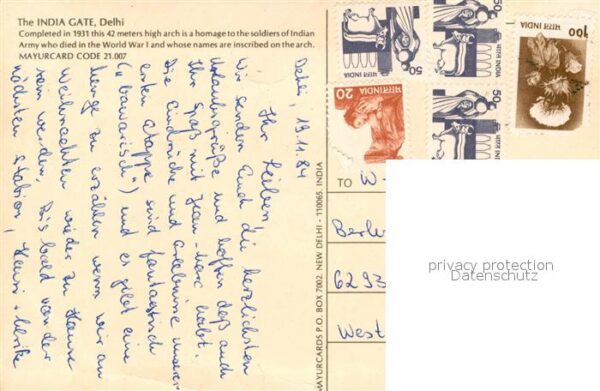 The INDIA GATE, Delhi
Completed in 1931 this 42 meters high arch is a homage to the soldiers of Indian
Army who died in the World War I and whose names are inscribed on the arch.
MAYURCARD CODE 21.007
Delhi, 19.11.84
Ihr Lieben
Wir senden Euch die herzlichsten
Urlaubsgrüße und hoffen daß auch
Ihr Spaß mit Jean-Marc habt.
Die Eindrücke und Erlebnisse unserer
ersten Etappe sind fantastisch
("bawarisch") und es gibt eine
Menge zu erzählen wenn wir an
Weihnachten wieder zu Hause
sein werden. Bis bald von der
nächsten Station,
MAYURCARDS P.O. BOX 7002, NEW DELHI - 110065. INDIA
50
भारत INDIA
50
भारत INDIA
50
भारत INDIA
50
भारत INDIA
20
भारत INDIA
1.00
भारत INDIA
TO
W-
Berl
6293
West
privacy protection
Datenschutz